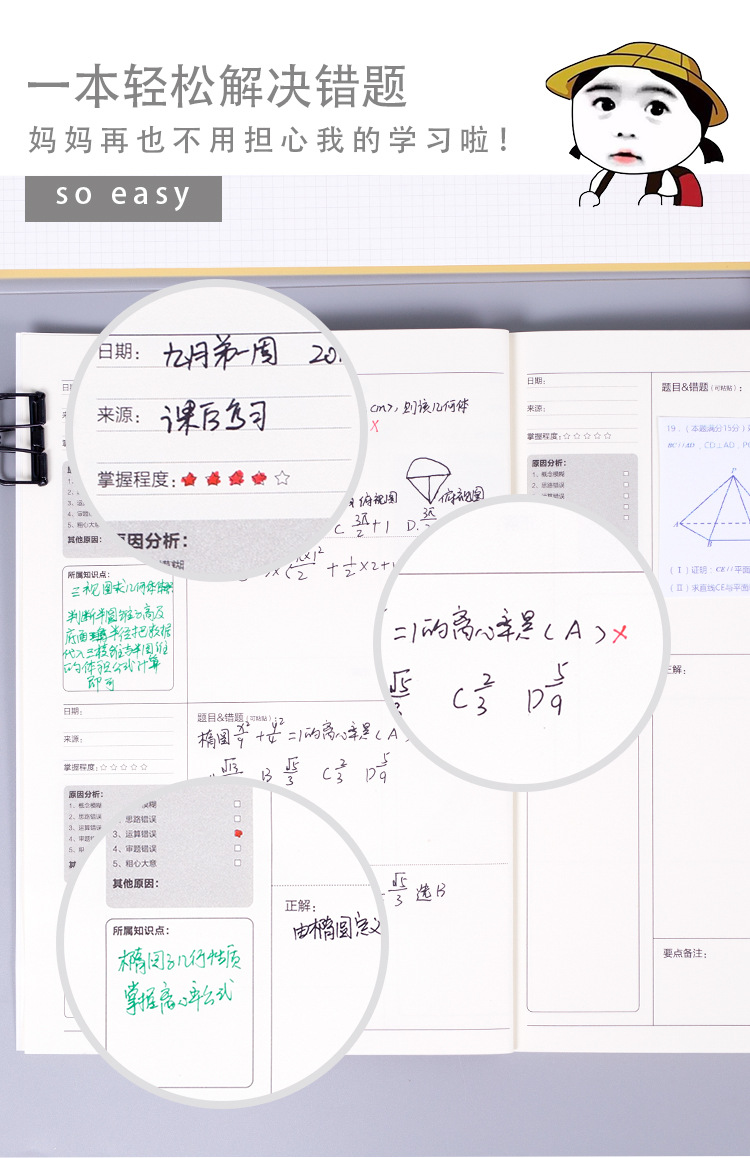 一本轻松解决错题
妈妈再也不用担心我的学习啦！
so easy
日期：九月第一周 20
来源：课后复习
掌握程度：
原因分析：
cm³），则该几何体
俯视图 俯视图
C. 3π/2+1 D.
其他原因：
所属知识点：
三视图求几何体体积
判断半圆锥的高及
底面半径把数据
代入三棱锥与半圆锥
的体积公式计算
即可
=1的离心率是（A）×
√5/3 C 2/3 D 5/9
日期：
来源：
掌握程度：☆☆☆☆☆
原因分析：
1、概念模糊
2、思路错误
3、运算错误
题目&错题（可粘贴）
椭圆 x²/9 + y²/4 =1的离心率是（A）
√13 B √5/3 C 2/3 D 5/9
思路错误
3、运算错误
4、审题错误
5、粗心大意
其他原因：
所属知识点：
椭圆的几何性质
掌握离心率公式
正解：
由椭圆定义
√5/3 选B
日期：
来源：
掌握程度：☆☆☆☆☆
原因分析：
1、概念模糊
2、思路错误
题目&错题（可粘贴）：
19．（本题满分15分）
BC//AD，CD⊥AD，PC
P
A
B
（Ⅰ）证明：CE//平面
（Ⅱ）求直线CE与平面
正解：
要点备注：